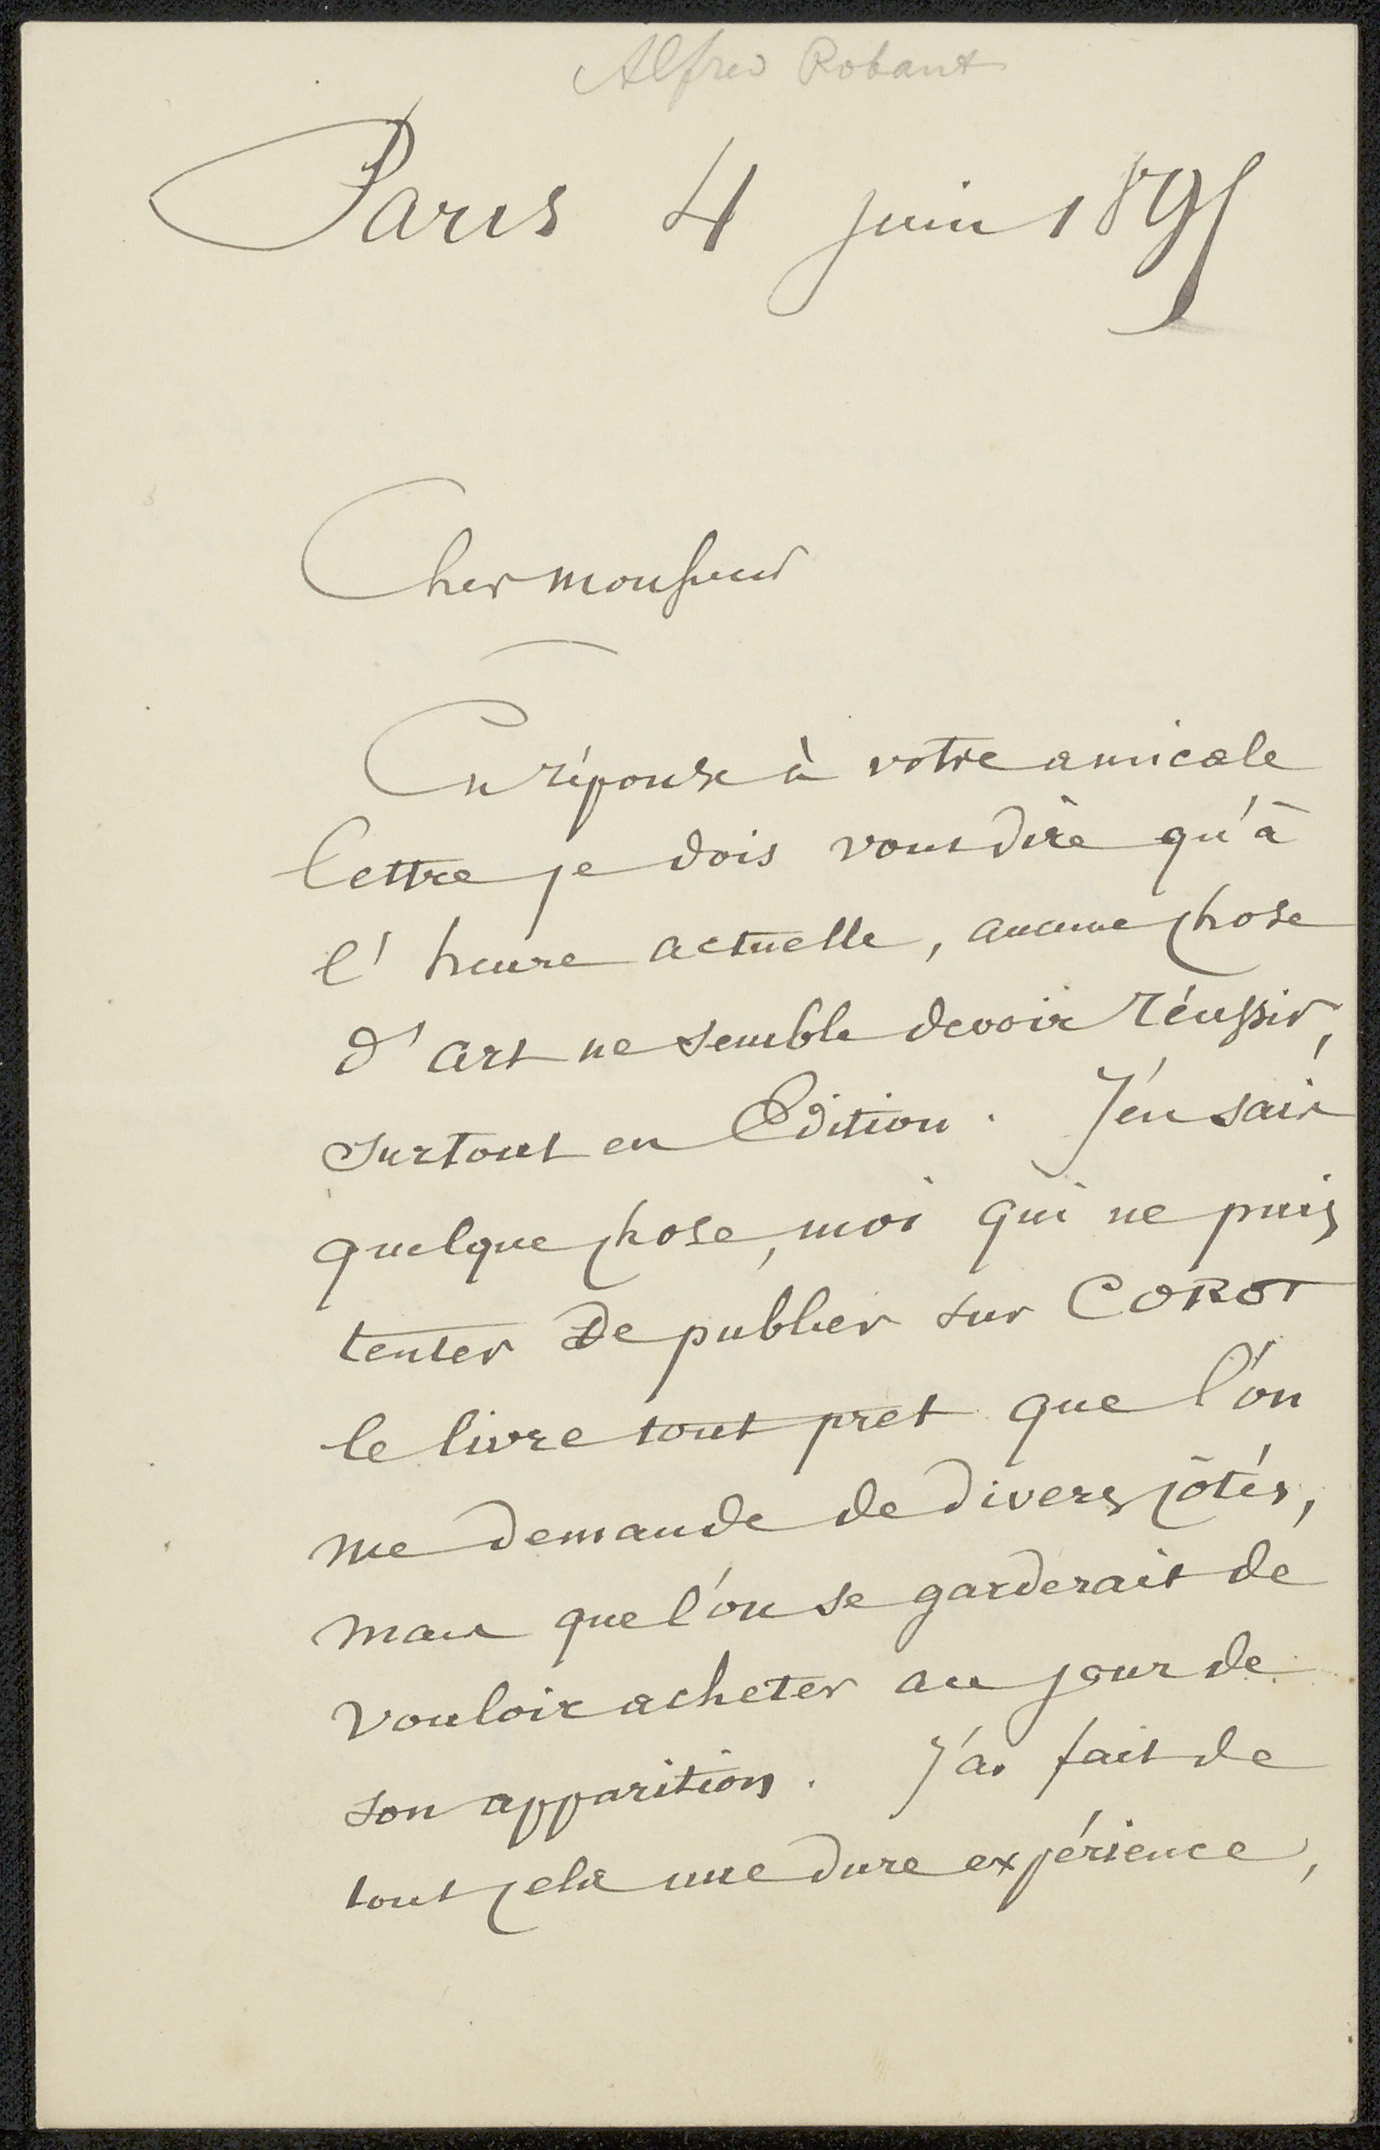 Alfred Robaut
Paris 4 juin 1895
Cher monsieur
En réponse à votre amicale
lettre je dois vous dire qu'à
l'heure actuelle, aucune chose
d'art ne semble devoir réussir,
surtout en Edition. J'en sais
quelque chose, moi qui ne puis
tenter de publier sur COROT
le livre tout pret que l'on
me demande de divers côtés,
mais que l'on se garderait de
vouloir acheter au jour de
son apparition. J'ai fait de
tout cela une dure expérience,